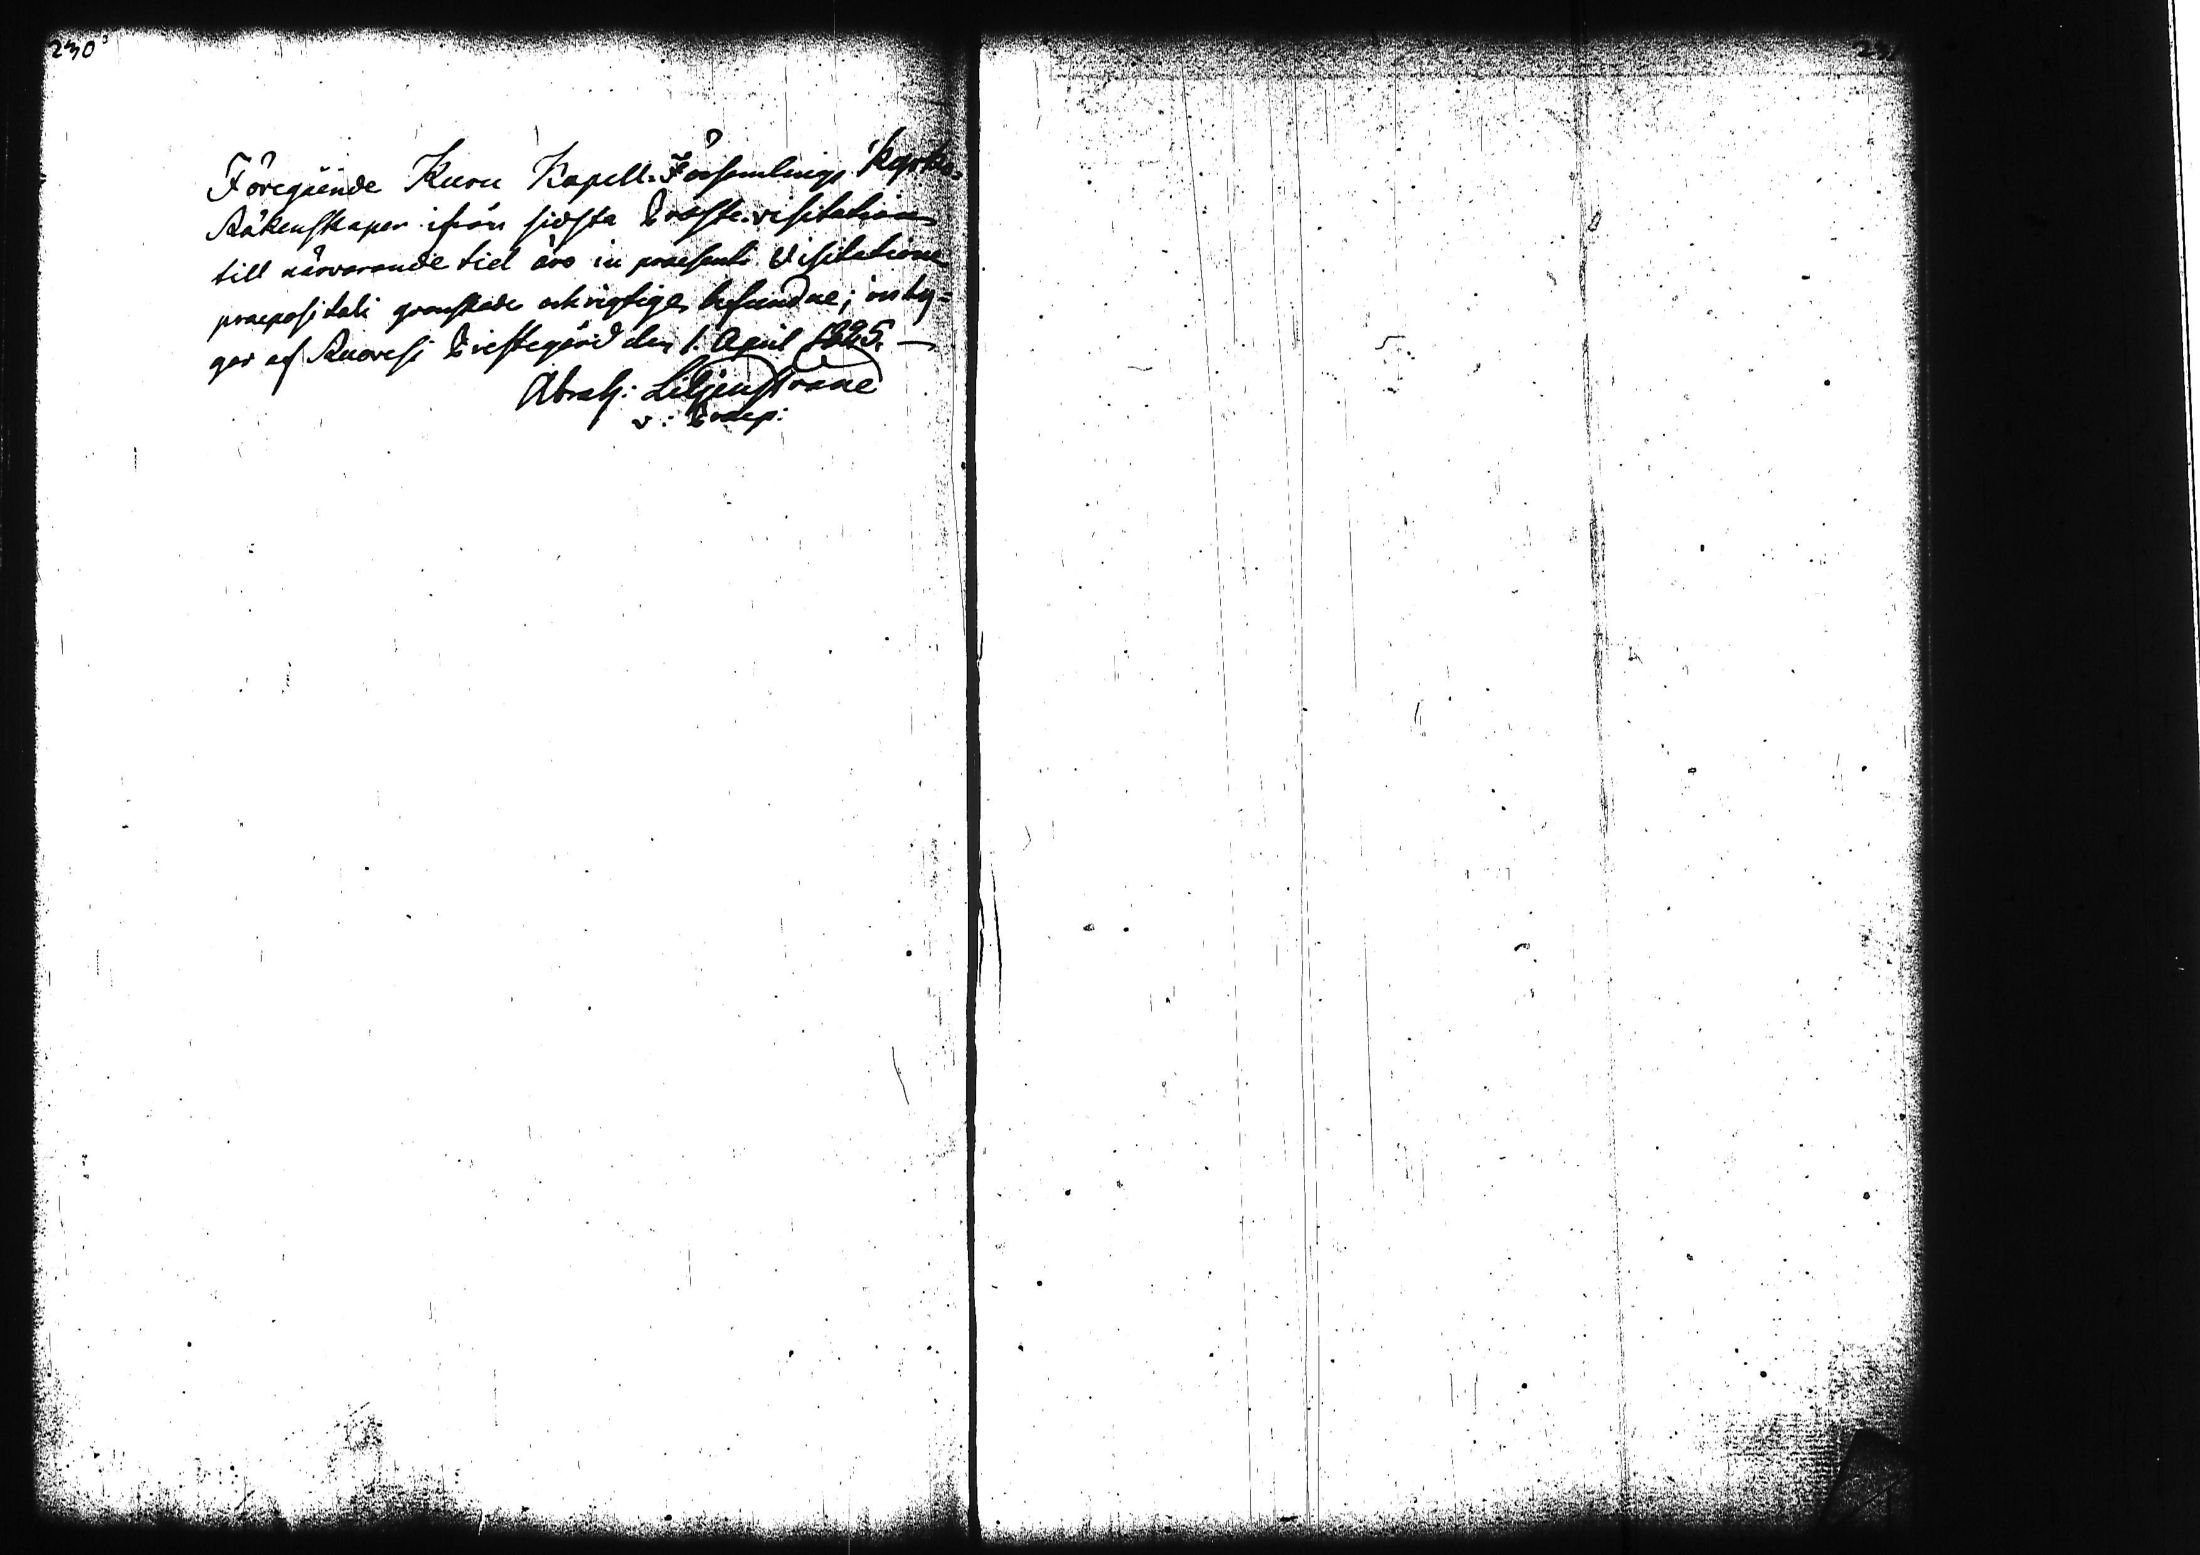 230
231
Föregående Kuru Kapell-Församlings Kyrko-
Räkenskaper ifrån sidsta Prosts-visitation
till närvarande tid äro in praesenti Visitatione
praepositali granskade och rigtige befundne; inty=
gar af Ruovesi Prestegård den 1. April 1825. —
Abrah: Liljenstrand
v: Praep: